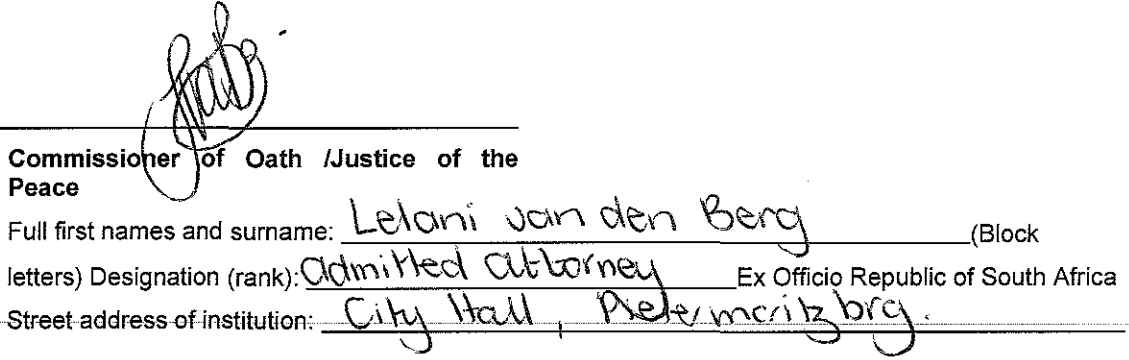 Commissioner of Oath /Justice of the
Peace
Full first names and surname: Lelani van den Berg (Block
letters) Designation (rank): admitted attorney Ex Officio Republic of South Africa
Street address of institution: City Hall, Pietermaritzbrg.